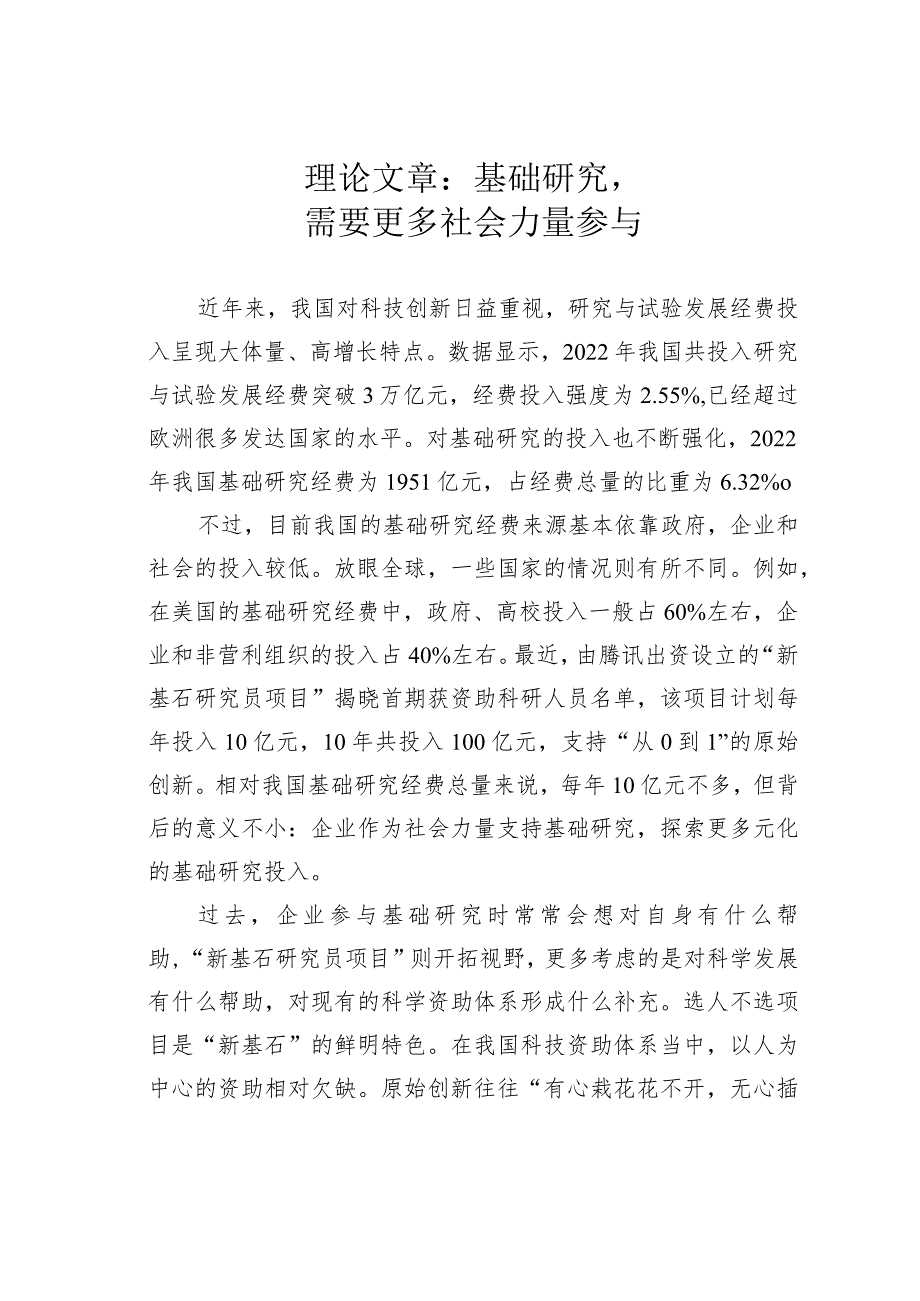 理论文章：基础研究，
需要更多社会力量参与
近年来，我国对科技创新日益重视，研究与试验发展经费投
入呈现大体量、高增长特点。数据显示，2022年我国共投入研究
与试验发展经费突破3万亿元，经费投入强度为2.55%,已经超过
欧洲很多发达国家的水平。对基础研究的投入也不断强化，2022
年我国基础研究经费为1951亿元，占经费总量的比重为6.32%o
不过，目前我国的基础研究经费来源基本依靠政府，企业和
社会的投入较低。放眼全球，一些国家的情况则有所不同。例如，
在美国的基础研究经费中，政府、高校投入一般占60%左右，企
业和非营利组织的投入占40%左右。最近，由腾讯出资设立的“新
基石研究员项目”揭晓首期获资助科研人员名单，该项目计划每
年投入10亿元，10年共投入100亿元，支持“从0到1”的原始
创新。相对我国基础研究经费总量来说，每年10亿元不多，但背
后的意义不小：企业作为社会力量支持基础研究，探索更多元化
的基础研究投入。
过去，企业参与基础研究时常常会想对自身有什么帮
助，“新基石研究员项目”则开拓视野，更多考虑的是对科学发展
有什么帮助，对现有的科学资助体系形成什么补充。选人不选项
目是“新基石”的鲜明特色。在我国科技资助体系当中，以人为
中心的资助相对欠缺。原始创新往往“有心栽花花不开，无心插